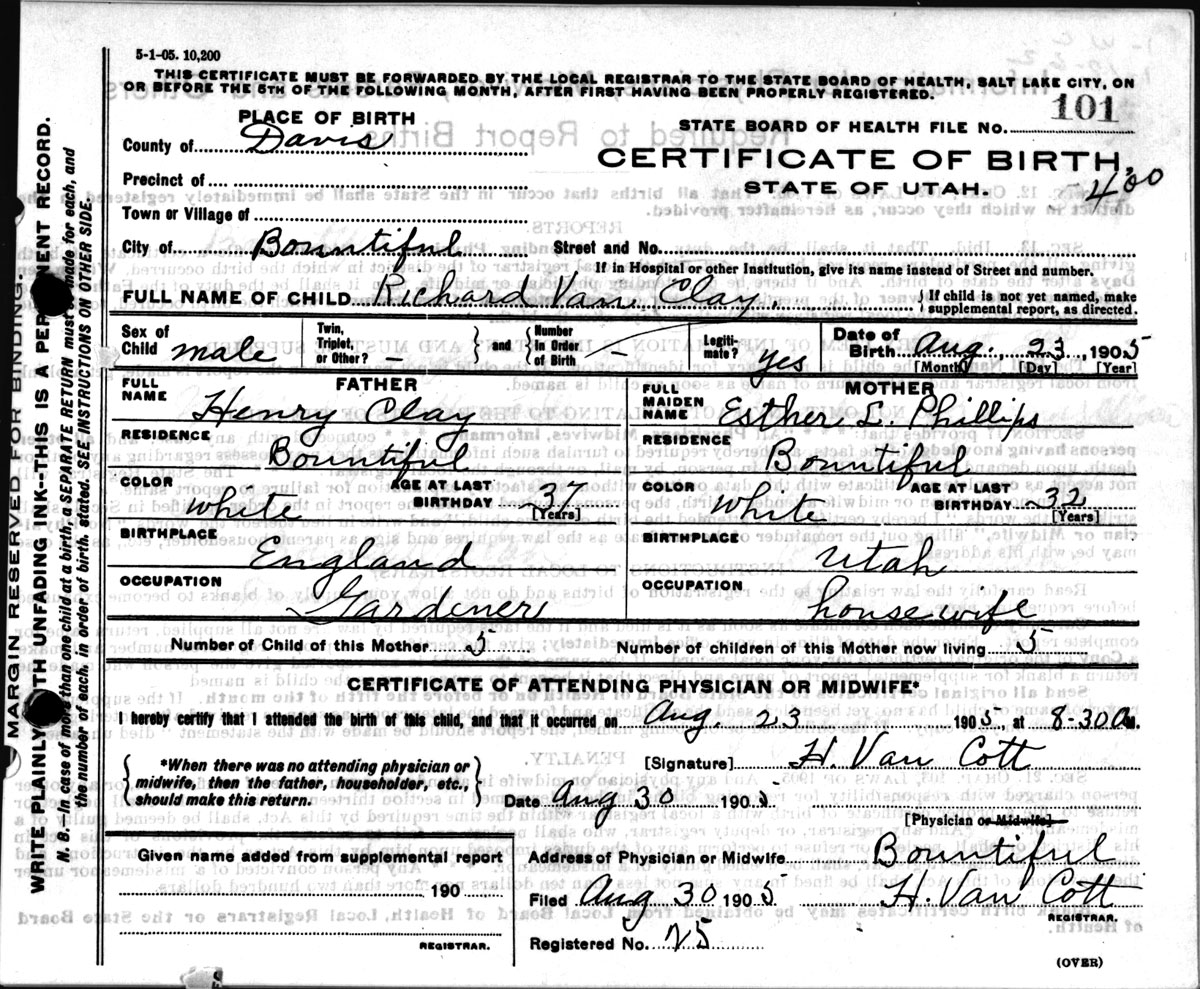 5-1-05. 10,200
THIS CERTIFICATE MUST BE FORWARDED BY THE LOCAL REGISTRAR TO THE STATE BOARD OF HEALTH, SALT LAKE CITY, ON
OR BEFORE THE 5TH OF THE FOLLOWING MONTH, AFTER FIRST HAVING BEEN PROPERLY REGISTERED.
PLACE OF BIRTH
STATE BOARD OF HEALTH FILE NO. 101
County of Davis
CERTIFICATE OF BIRTH,
Precinct of
STATE OF UTAH. 400
Town or Village of
City of Bountiful Street and No.
If in Hospital or other Institution, give its name instead of Street and number.
FULL NAME OF CHILD Richard Van Clay. { If child is not yet named, make
supplemental report, as directed.
Sex of
Child male
Twin,
Triplet,
or Other? —
} and {
Number
in Order
of Birth —
Legiti-
mate? yes
Date of
Birth Aug. 23, 1905
[Month] [Day] [Year]
FULL
NAME
FATHER
Henry Clay
FULL
MAIDEN
NAME
MOTHER
Esther L. Phillips
RESIDENCE
Bountiful
RESIDENCE
Bountiful
COLOR
white
AGE AT LAST
BIRTHDAY 37
[Years]
COLOR
white
AGE AT LAST
BIRTHDAY 32
[Years]
BIRTHPLACE
England
BIRTHPLACE
Utah
OCCUPATION
Gardener
OCCUPATION
housewife
Number of Child of this Mother 5 Number of children of this Mother now living 5
CERTIFICATE OF ATTENDING PHYSICIAN OR MIDWIFE*
I hereby certify that I attended the birth of this child, and that it occurred on Aug. 23 1905, at 8-30 a M.
*When there was no attending physician or
midwife, then the father, householder, etc.,
should make this return.
[Signature] H. Van Cott
Date Aug 30 1905
[Physician or Midwife]
Given name added from supplemental report
190
REGISTRAR.
Address of Physician or Midwife Bountiful
Filed Aug 30 1905 H. Van Cott
REGISTRAR.
Registered No. 25
(OVER)
MARGIN RESERVED FOR BINDING.
WRITE PLAINLY WITH UNFADING INK--THIS IS A PERMANENT RECORD.
N. B.—In case of more than one child at a birth, a SEPARATE RETURN must be made for each, and
the number of each, in order of birth, stated. SEE INSTRUCTIONS ON OTHER SIDE.